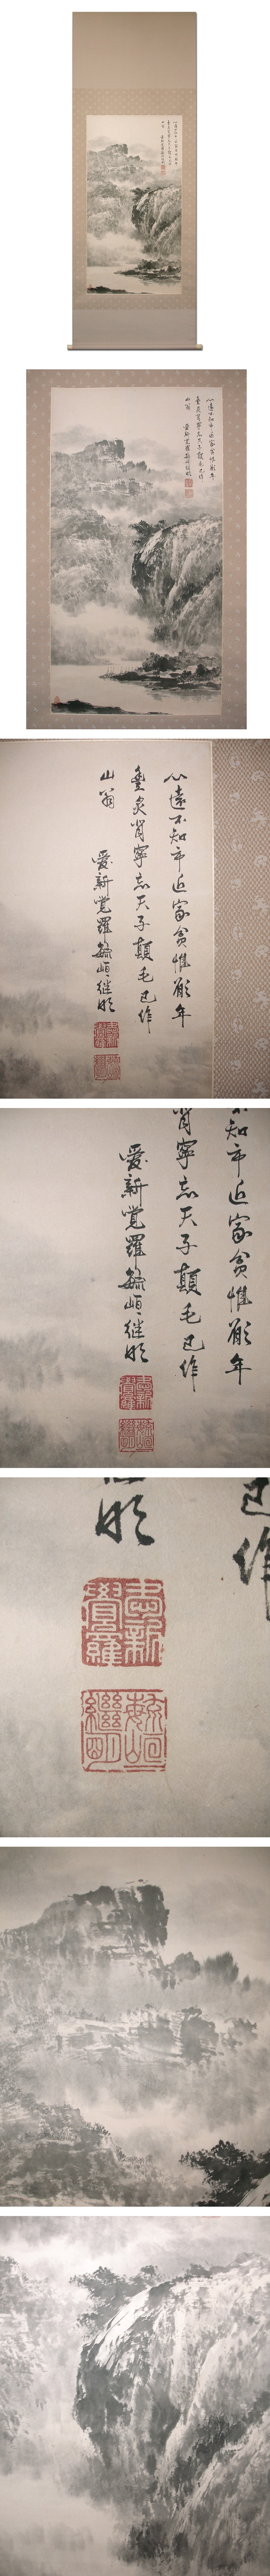 心遠不知市近家貧惟願年
豊炙背寧忘天子顛毛已作
山翁
愛新覚羅毓峘継明
愛新
覺羅
毓峘
繼明